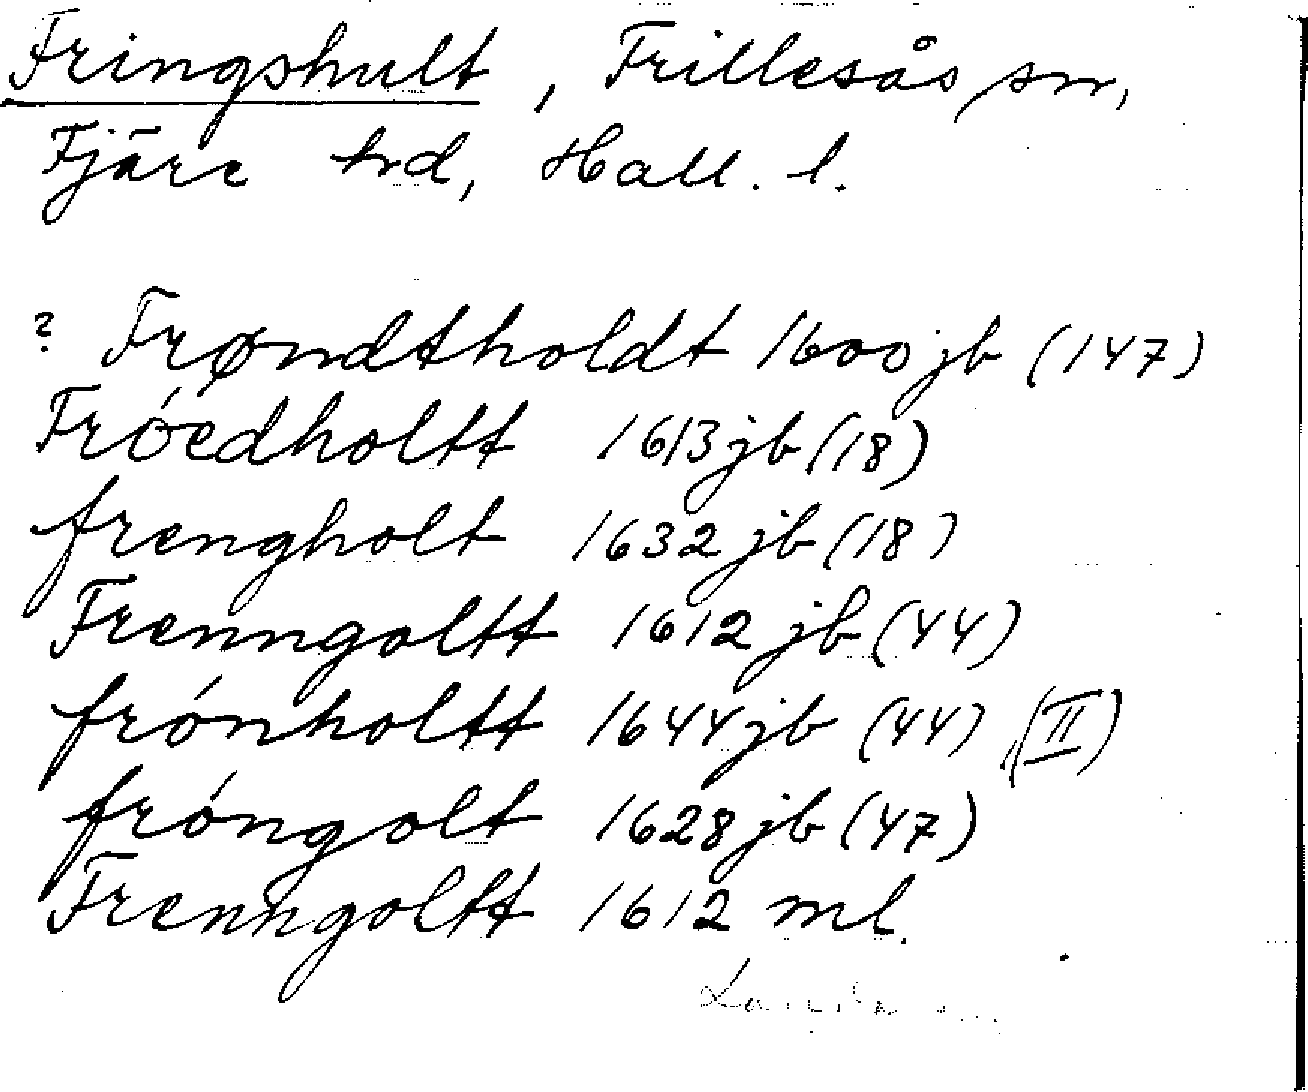 Fringshult, Frillesås sn,
Fjäre hd, Hall. l.
? Frøndtholdt 1600 jb (147)
Fróedholtt 1613 jb (18)
frengholt 1632 jb (18)
Frenngoltt 1612 jb (44)
frónholtt 1644 jb (44) (II)
fróngolt 1628 jb (47)
Frenngoltt 1612 ml.